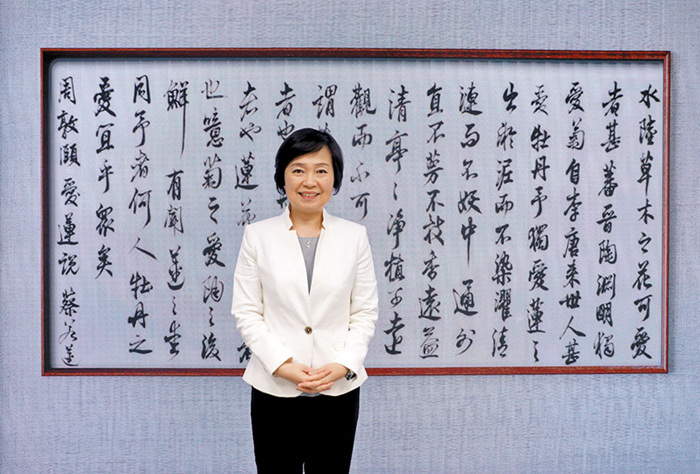 水陸草木之花可愛
者甚蕃晉陶淵明獨
愛菊自李唐来世人甚
愛牡丹予獨愛蓮之
出淤泥而不染濯清
漣而不妖中通外
直不蔓不枝香遠益
清亭〻淨植可遠
觀而不可
謂
者也
者也蓮
也噫菊之愛陶之後
鮮有聞蓮之愛
同予者何人牡丹之
愛宜乎衆矣
周敦頤愛蓮說 蔡若蓮